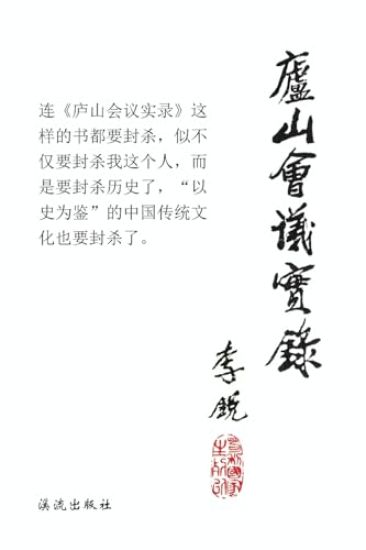 廬山會議實錄
李銳
连《庐山会议实录》这
样的书都要封杀，似不
仅要封杀我这个人，而
是要封杀历史了，“以
史为鉴”的中国传统文
化也要封杀了。
溪流出版社